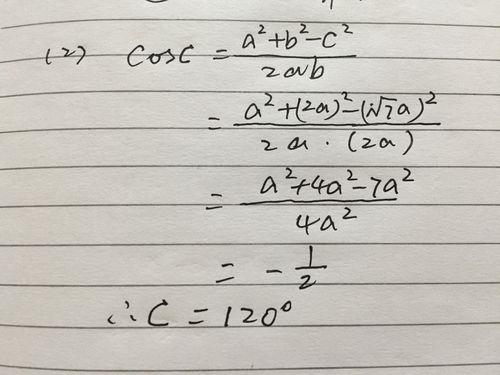 (2) cosC = \frac{a²+b²-c²}{2ab}
= \frac{a²+(2a)²-(√7a)²}{2a·(2a)}
= \frac{a²+4a²-7a²}{4a²}
= -\frac{1}{2}
∴C = 120°